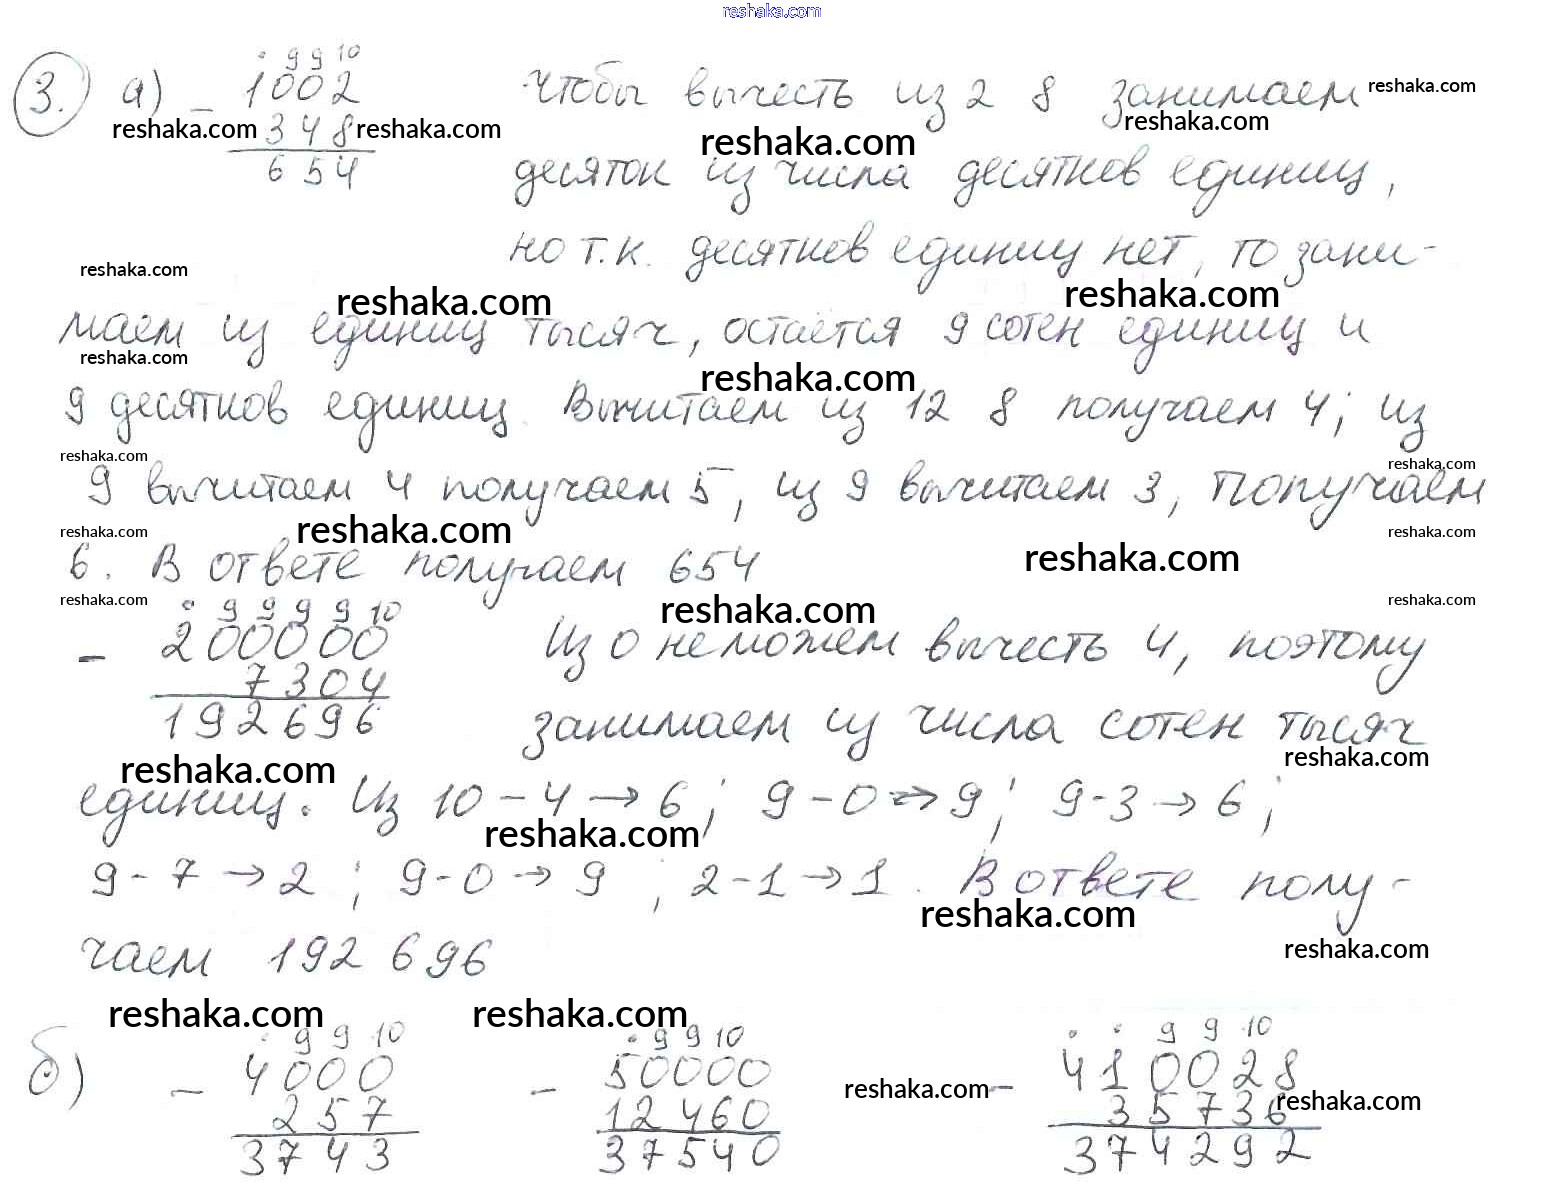 reshaka.com
3. а) . 9 9 10
– 1002 Чтобы вычесть из 2 8 занимаем reshaka.com
reshaka.com 348 reshaka.com reshaka.com reshaka.com
654 десяток из числа десятков единиц,
но т.к. десятков единиц нет, то зани-
reshaka.com
reshaka.com reshaka.com
маем из единиц тысяч, остаётся 9 сотен единиц и
reshaka.com reshaka.com
9 десятков единиц. Вычитаем из 12 8 получаем 4; из
reshaka.com reshaka.com
9 вычитаем 4 получаем 5, из 9 вычитаем 3, получаем
reshaka.com reshaka.com reshaka.com
6. В ответе получаем 654 reshaka.com
reshaka.com reshaka.com reshaka.com
. 9 9 9 9 10
– 200000 Из 0 не можем вычесть 4, поэтому
7304
192696 занимаем из числа сотен тысяч
reshaka.com reshaka.com
единиц. Из 10 – 4 → 6; 9 – 0 → 9; 9 - 3 → 6;
reshaka.com
9 - 7 → 2; 9 - 0 → 9; 2 - 1 → 1. В ответе полу-
reshaka.com
чаем 192 696 reshaka.com
reshaka.com reshaka.com
б) . 9 9 10 . 9 9 10 . . 9 9 10
– 4000 – 50000 reshaka.com – 410028
257 12460 35736 reshaka.com
3743 37540 374292